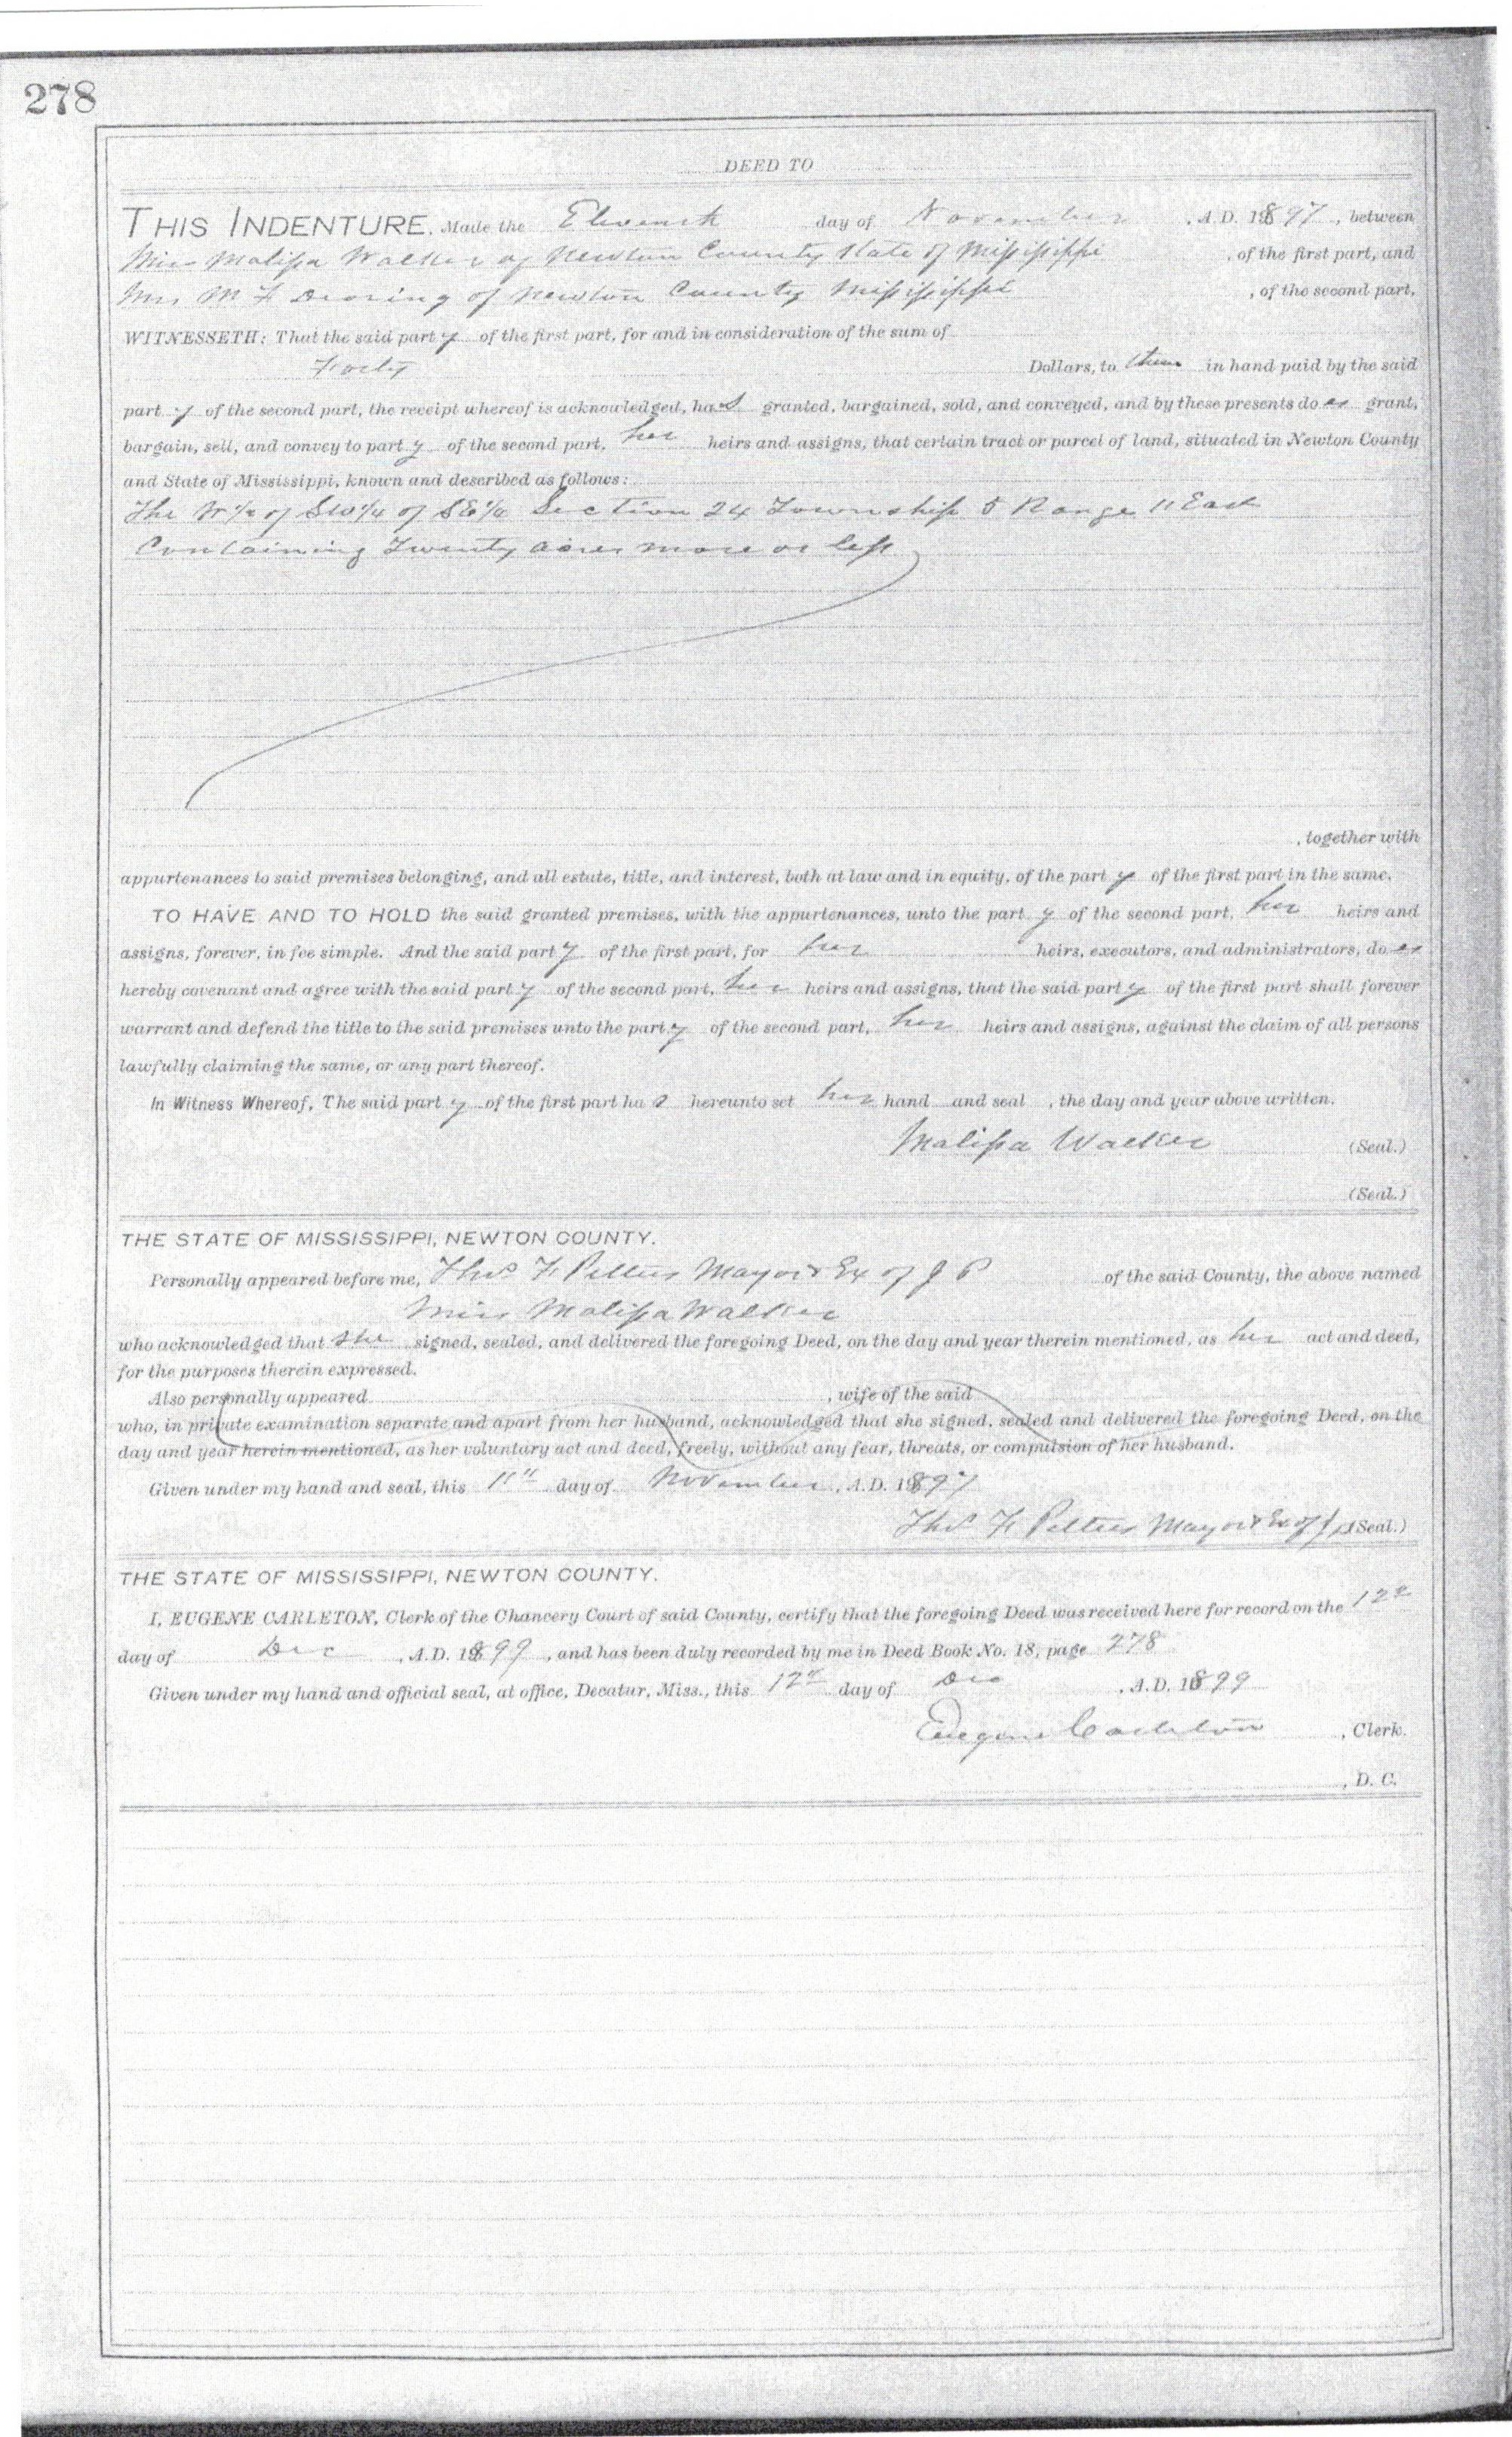 278
DEED TO
THIS INDENTURE, Made the Eleventh day of November, A.D. 1897, between
Miss Malissa Walker of Newton County State of Mississippi, of the first part, and
Mrs M F Dearing of Newton County Mississippi, of the second part,
WITNESSETH: That the said party of the first part, for and in consideration of the sum of
Forty Dollars, to them in hand paid by the said
party of the second part, the receipt whereof is acknowledged, has granted, bargained, sold, and conveyed, and by these presents does grant,
bargain, sell, and convey to party of the second part, her heirs and assigns, that certain tract or parcel of land, situated in Newton County
and State of Mississippi, known and described as follows:
The W½ of SW¼ of SE¼ Section 24 Township 5 Range 11 East
Containing Twenty acres more or less
, together with
appurtenances to said premises belonging, and all estate, title, and interest, both at law and in equity, of the party of the first part in the same.
TO HAVE AND TO HOLD the said granted premises, with the appurtenances, unto the party of the second part, her heirs and
assigns, forever, in fee simple. And the said party of the first part, for her heirs, executors, and administrators, does
hereby covenant and agree with the said party of the second part, her heirs and assigns, that the said party of the first part shall forever
warrant and defend the title to the said premises unto the party of the second part, her heirs and assigns, against the claim of all persons
lawfully claiming the same, or any part thereof.
In Witness Whereof, The said party of the first part has hereunto set her hand and seal, the day and year above written.
Malissa Walker (Seal.)
(Seal.)
THE STATE OF MISSISSIPPI, NEWTON COUNTY.
Personally appeared before me, Thos F Pettus Mayor & Ex of J P of the said County, the above named
Miss Malissa Walker
who acknowledged that she signed, sealed, and delivered the foregoing Deed, on the day and year therein mentioned, as her act and deed,
for the purposes therein expressed.
Also personally appeared , wife of the said
who, in private examination separate and apart from her husband, acknowledged that she signed, sealed and delivered the foregoing Deed, on the
day and year herein mentioned, as her voluntary act and deed, freely, without any fear, threats, or compulsion of her husband.
Given under my hand and seal, this 11" day of November, A.D. 1897
Thos F Pettus Mayor & Ex of J P (Seal.)
THE STATE OF MISSISSIPPI, NEWTON COUNTY.
I, EUGENE CARLETON, Clerk of the Chancery Court of said County, certify that the foregoing Deed was received here for record on the 12"
day of Dec, A.D. 1899, and has been duly recorded by me in Deed Book No. 18, page 278
Given under my hand and official seal, at office, Decatur, Miss., this 12" day of Dec, A.D. 1899
Eugene Carleton, Clerk.
, D. C.